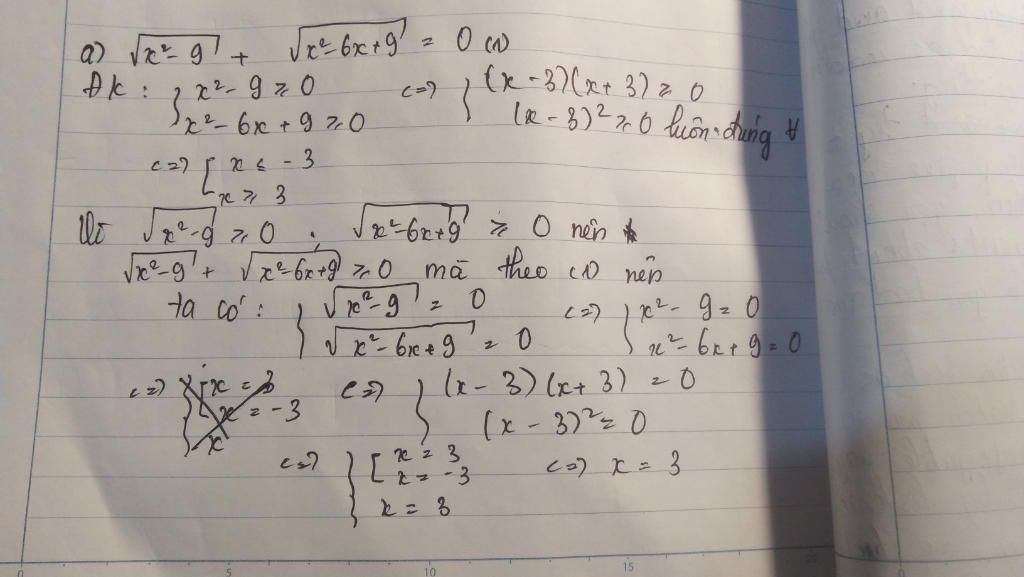 a) √(x²-9) + √(x²-6x+9) = 0 (1)
Đk : { x²-9 ≥ 0 <=> { (x-3)(x+3) ≥ 0
x²-6x+9 ≥ 0 (x-3)² ≥ 0 luôn đúng ∀
<=> [ x ≤ -3
x ≥ 3
Vì √(x²-9) ≥ 0 ; √(x²-6x+9) ≥ 0 nên
√(x²-9) + √(x²-6x+9) ≥ 0 mà theo (1) nên
ta có : { √(x²-9) = 0 <=> { x²-9 = 0
√(x²-6x+9) = 0 x²-6x+9 = 0
<=> { [ x = 3 <=> { (x-3)(x+3) = 0
x = -3 (x-3)² = 0
x
<=> { [ x = 3 <=> x = 3
x = -3
x = 3
0 5 10 15
0